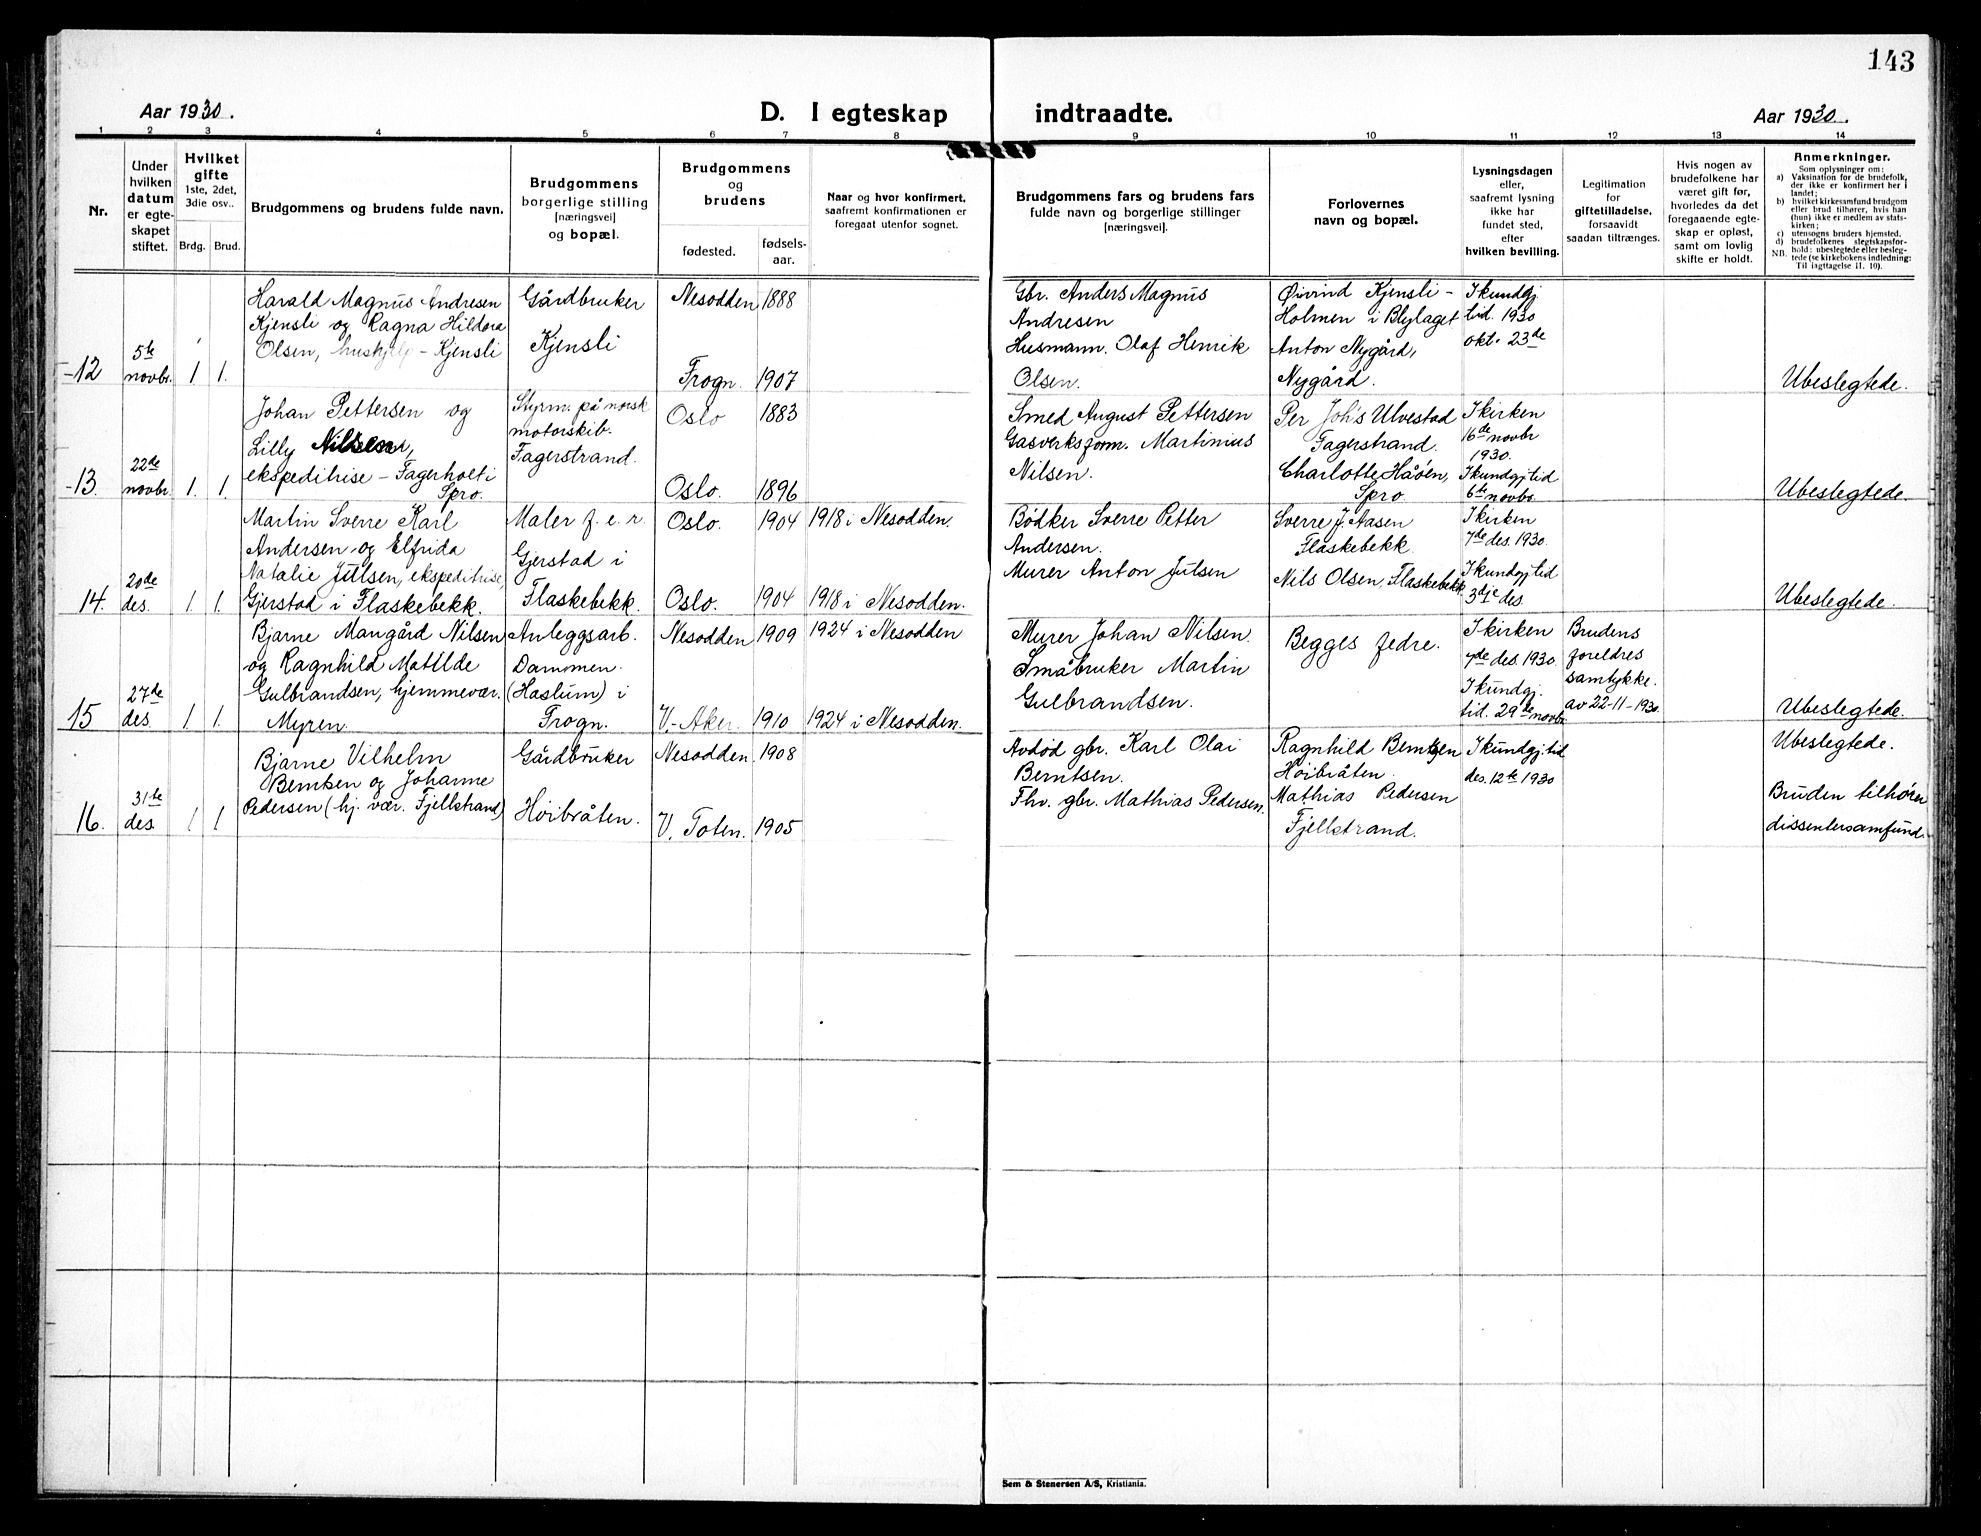 143
Aar 1930.
D. I egteskap indtraadte.
Aar 1930.
1 2 3 4 5 6 7 8 9 10 11 12 13 14
Nr.
Under
hvilken
datum
er egte-
skapet
stiftet.
Hvilket
gifte
1ste, 2det,
3die osv..
Brdg. Brud.
Brudgommens og brudens fulde navn.
Brudgommens
borgerlige stilling
[næringsvei]
og bopæl.
Brudgommens
og
brudens
fødested.
fødsels-
aar.
Naar og hvor konfirmert,
saafremt konfirmationen er
foregaat utenfor sognet.
Brudgommens fars og brudens fars
fulde navn og borgerlige stillinger
[næringsvei].
Forlovernes
navn og bopæl.
Lysningsdagen
eller,
saafremt lysning
ikke har
fundet sted,
efter
hvilken bevilling.
Legitimation
for
giftetilladelse,
forsaavidt
saadan tiltrænges.
Hvis nogen av
brudefolkene har
været gift før,
hvorledes da det
foregaaende egte-
skap er opløst,
samt om lovlig
skifte er holdt.
Anmerkninger.
Som oplysninger om:
a) Vaksination for de brudefolk,
der ikke er konfirmert her i
landet;
b) hvilket kirkesamfund brudgom
eller brud tilhører, hvis han
(hun) ikke er medlem av stats-
kirken;
c) utensogns bruders hjemsted.
d) brudefolkenes slegtskapsfor-
hold: ubeslegtede eller besleg-
NB. tede (se kirkebokens indledning:
Til iagttagelse II. 10).
-12
5te
novbr.
1 1.
Harald Magnus Andresen
Kjensli og Ragna Hildora
Olsen, hushjelp - Kjensli
Gårdbruker
Kjensli
Nesodden 1888
Frogn. 1907
Gbr. Anders Magnus
Andresen
Husmann. Olaf Henrik
Olsen.
Øivind Kjensli -
Holmen i Blylaget
Anton Nygård,
Nygård.
I kundgj.
tid. 1930
okt. 23de
Ubeslegtede.
-13.
22de
novbr.
1. 1.
Johan Pettersen og
Lilly Nilsen,
ekspeditrise - Fagerholt i
Spro.
Styrm. på norsk
motorskib.
Fagerstrand.
Oslo 1883
Oslo. 1896
Smed August Pettersen
Gasverksform. Martinius
Nilsen.
Per Joh's Ulvestad
Fagerstrand.
Charlotte Håøen,
Spro.
I kirken
16de novbr
1930.
I kundgj tid
6te novbr.
Ubeslegtede.
14.
20de
des.
1. 1.
Martin Sverre Karl
Andersen og Elfrida
Natalie Julsen, ekspeditrise,
Gjerstad i Flaskebekk.
Maler f. e. r.
Gjerstad i
Flaskebekk.
Oslo. 1904 1918 i Nesodden.
Oslo. 1904 1918 i Nesodden.
Bødker Sverre Petter
Andersen.
Murer Anton Julsen
Sverre J. Aasen
Flaskebekk.
Nils Olsen, Flaskebekk.
I kirken
7de des. 1930.
I kundgj tid
3dje des.
Ubeslegtede.
15
27de
des.
1 1.
Bjarne Mangård Nilsen
og Ragnhild Matilde
Gulbrandsen, hjemmevær.
Myren.
Anleggsarb.
Dammen.
(Haslum) i
Frogn.
Nesodden 1909 1924 i Nesodden
V.-Aker. 1910 1924 i Nesodden.
Murer Johan Nilsen.
Småbruker Martin
Gulbrandsen.
Begges fedre.
I kirken
7de des. 1930.
I kundgj.
tid. 29de novbr
Brudens
foreldres
samtykke.
av 22-11-1930.
Ubeslegtede.
16.
31te
des.
1 1
Bjarne Vilhelm
Berntsen og Johanne
Pedersen (hj. vær. Fjellstrand)
Gårdbruker
Høibråten.
Nesodden. 1908
V. Toten. 1905
Avdød gbr. Karl Olai
Berntsen.
Fhv. gbr. Mathias Pedersen.
Ragnhild Berntsen
Høibråten.
Mathias Pedersen
Fjellstrand.
I kundgj. tid
des. 12te 1930
Ubeslegtede.
Bruden tilhører
dissentersamfund.
Sem & Stenersen A/S, Kristiania.